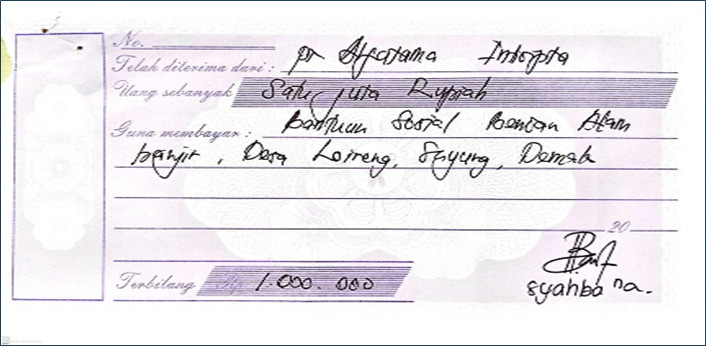 No.
Telah diterima dari : PT Integra
Uang sebanyak Satu juta Rupiah
Guna membayar : Bantuan Sosial Bencan Alam
banjir, Desa Loireng, Sayung, Demak
20
Terbilang Rp. 1.000.000
syahbana.